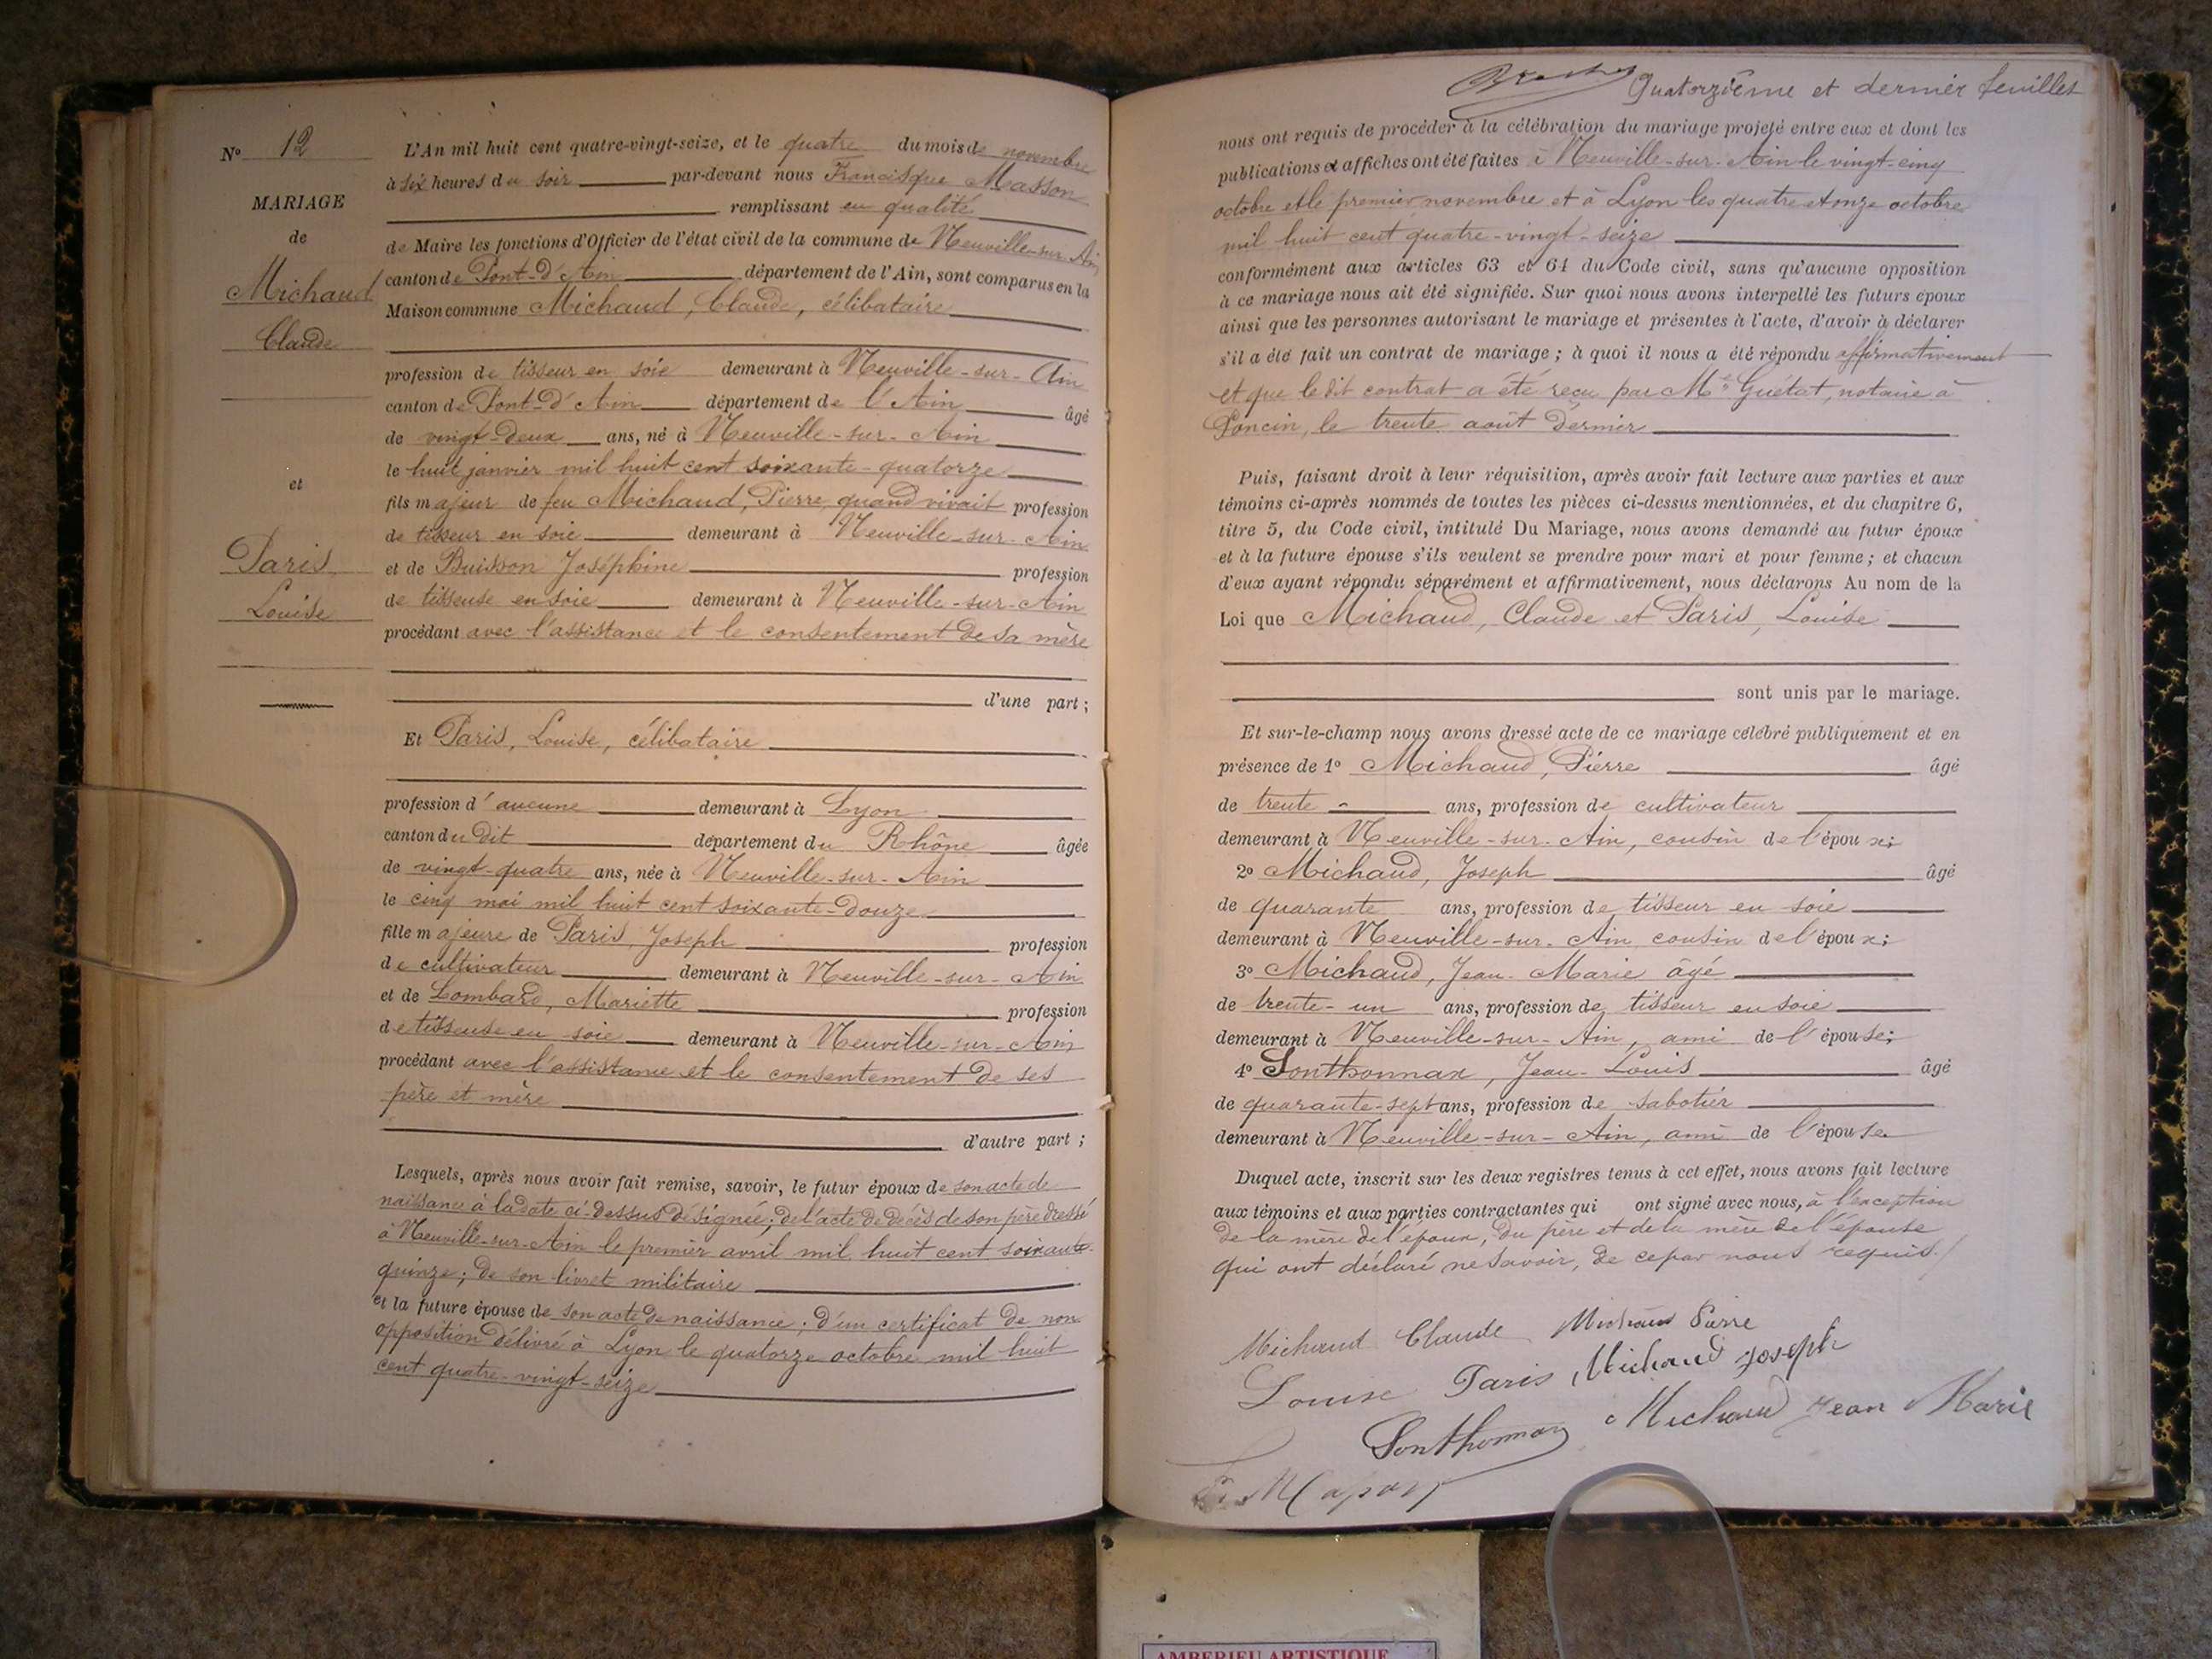 N° 12
MARIAGE
de
Michaud
Claude
et
Paris
Louise
L'An mil huit cent quatre-vingt-seize, et le quatre du mois de novembre
à six heures du soir par-devant nous Francisque Masson
remplissant en qualité
de Maire les fonctions d'Officier de l'état civil de la commune de Neuville-sur-Ain
canton de Pont-d'Ain département de l'Ain, sont comparus en la
Maison commune Michaud, Claude, célibataire
profession de tisseur en soie demeurant à Neuville-sur-Ain
canton de Pont-d'Ain département de l'Ain âgé
de vingt-deux ans, né à Neuville-sur-Ain
le huit janvier mil huit cent soixante-quatorze
fils majeur de feu Michaud, Pierre, quand vivait profession
de tisseur en soie demeurant à Neuville-sur-Ain
et de Buisson Joséphine profession
de tisseuse en soie demeurant à Neuville-sur-Ain
procédant avec l'assistance et le consentement de sa mère
d'une part ;
Et Paris, Louise, célibataire
profession d'aucune demeurant à Lyon
canton du dit département du Rhône âgée
de vingt-quatre ans, née à Neuville-sur-Ain
le cinq mai mil huit cent soixante-douze
fille majeure de Paris, Joseph profession
de cultivateur demeurant à Neuville-sur-Ain
et de Lombard, Mariette profession
de tisseuse en soie demeurant à Neuville-sur-Ain
procédant avec l'assistance et le consentement de ses
père et mère
d'autre part ;
Lesquels, après nous avoir fait remise, savoir, le futur époux de son acte de
naissance à la date ci-dessus désignée ; de l'acte de décès de son père dressé
à Neuville-sur-Ain le premier avril mil huit cent soixante-
quinze ; de son livret militaire
et la future épouse de son acte de naissance ; d'un certificat de non
opposition délivré à Lyon le quatorze octobre mil huit
cent quatre-vingt-seize
Quatorzième et dernier feuillet
nous ont requis de procéder à la célébration du mariage projeté entre eux et dont les
publications et affiches ont été faites à Neuville-sur-Ain le vingt-cinq
octobre et le premier novembre et à Lyon les quatre et onze octobre
mil huit cent quatre-vingt-seize
conformément aux articles 63 et 64 du Code civil, sans qu'aucune opposition
à ce mariage nous ait été signifiée. Sur quoi nous avons interpellé les futurs époux
ainsi que les personnes autorisant le mariage et présentes à l'acte, d'avoir à déclarer
s'il a été fait un contrat de mariage ; à quoi il nous a été répondu affirmativement
et que le dit contrat a été reçu par Me Guétat, notaire à
Poncin, le trente août dernier
Puis, faisant droit à leur réquisition, après avoir fait lecture aux parties et aux
témoins ci-après nommés de toutes les pièces ci-dessus mentionnées, et du chapitre 6,
titre 5, du Code civil, intitulé Du Mariage, nous avons demandé au futur époux
et à la future épouse s'ils veulent se prendre pour mari et pour femme ; et chacun
d'eux ayant répondu séparément et affirmativement, nous déclarons Au nom de la
Loi que Michaud, Claude et Paris, Louise
sont unis par le mariage.
Et sur-le-champ nous avons dressé acte de ce mariage célébré publiquement et en
présence de 1° Michaud, Pierre âgé
de trente ans, profession de cultivateur
demeurant à Neuville-sur-Ain, cousin de l'époux ;
2° Michaud, Joseph âgé
de quarante ans, profession de tisseur en soie
demeurant à Neuville-sur-Ain cousin de l'époux ;
3° Michaud, Jean-Marie âgé
de trente-un ans, profession de tisseur en soie
demeurant à Neuville-sur-Ain, ami de l'épouse ;
4° Sonthonnax, Jean-Louis âgé
de quarante-sept ans, profession de sabotier
demeurant à Neuville-sur-Ain, ami de l'épouse
Duquel acte, inscrit sur les deux registres tenus à cet effet, nous avons fait lecture
aux témoins et aux parties contractantes qui ont signé avec nous, à l'exception
de la mère de l'époux, du père et de la mère de l'épouse
qui ont déclaré ne savoir, de ce par nous requis.
Michaud Claude Michaud Pierre
Louise Paris Michaud Joseph
Sonthonnax Michaud Jean Marie
AMBERIEU ARTISTIQUE